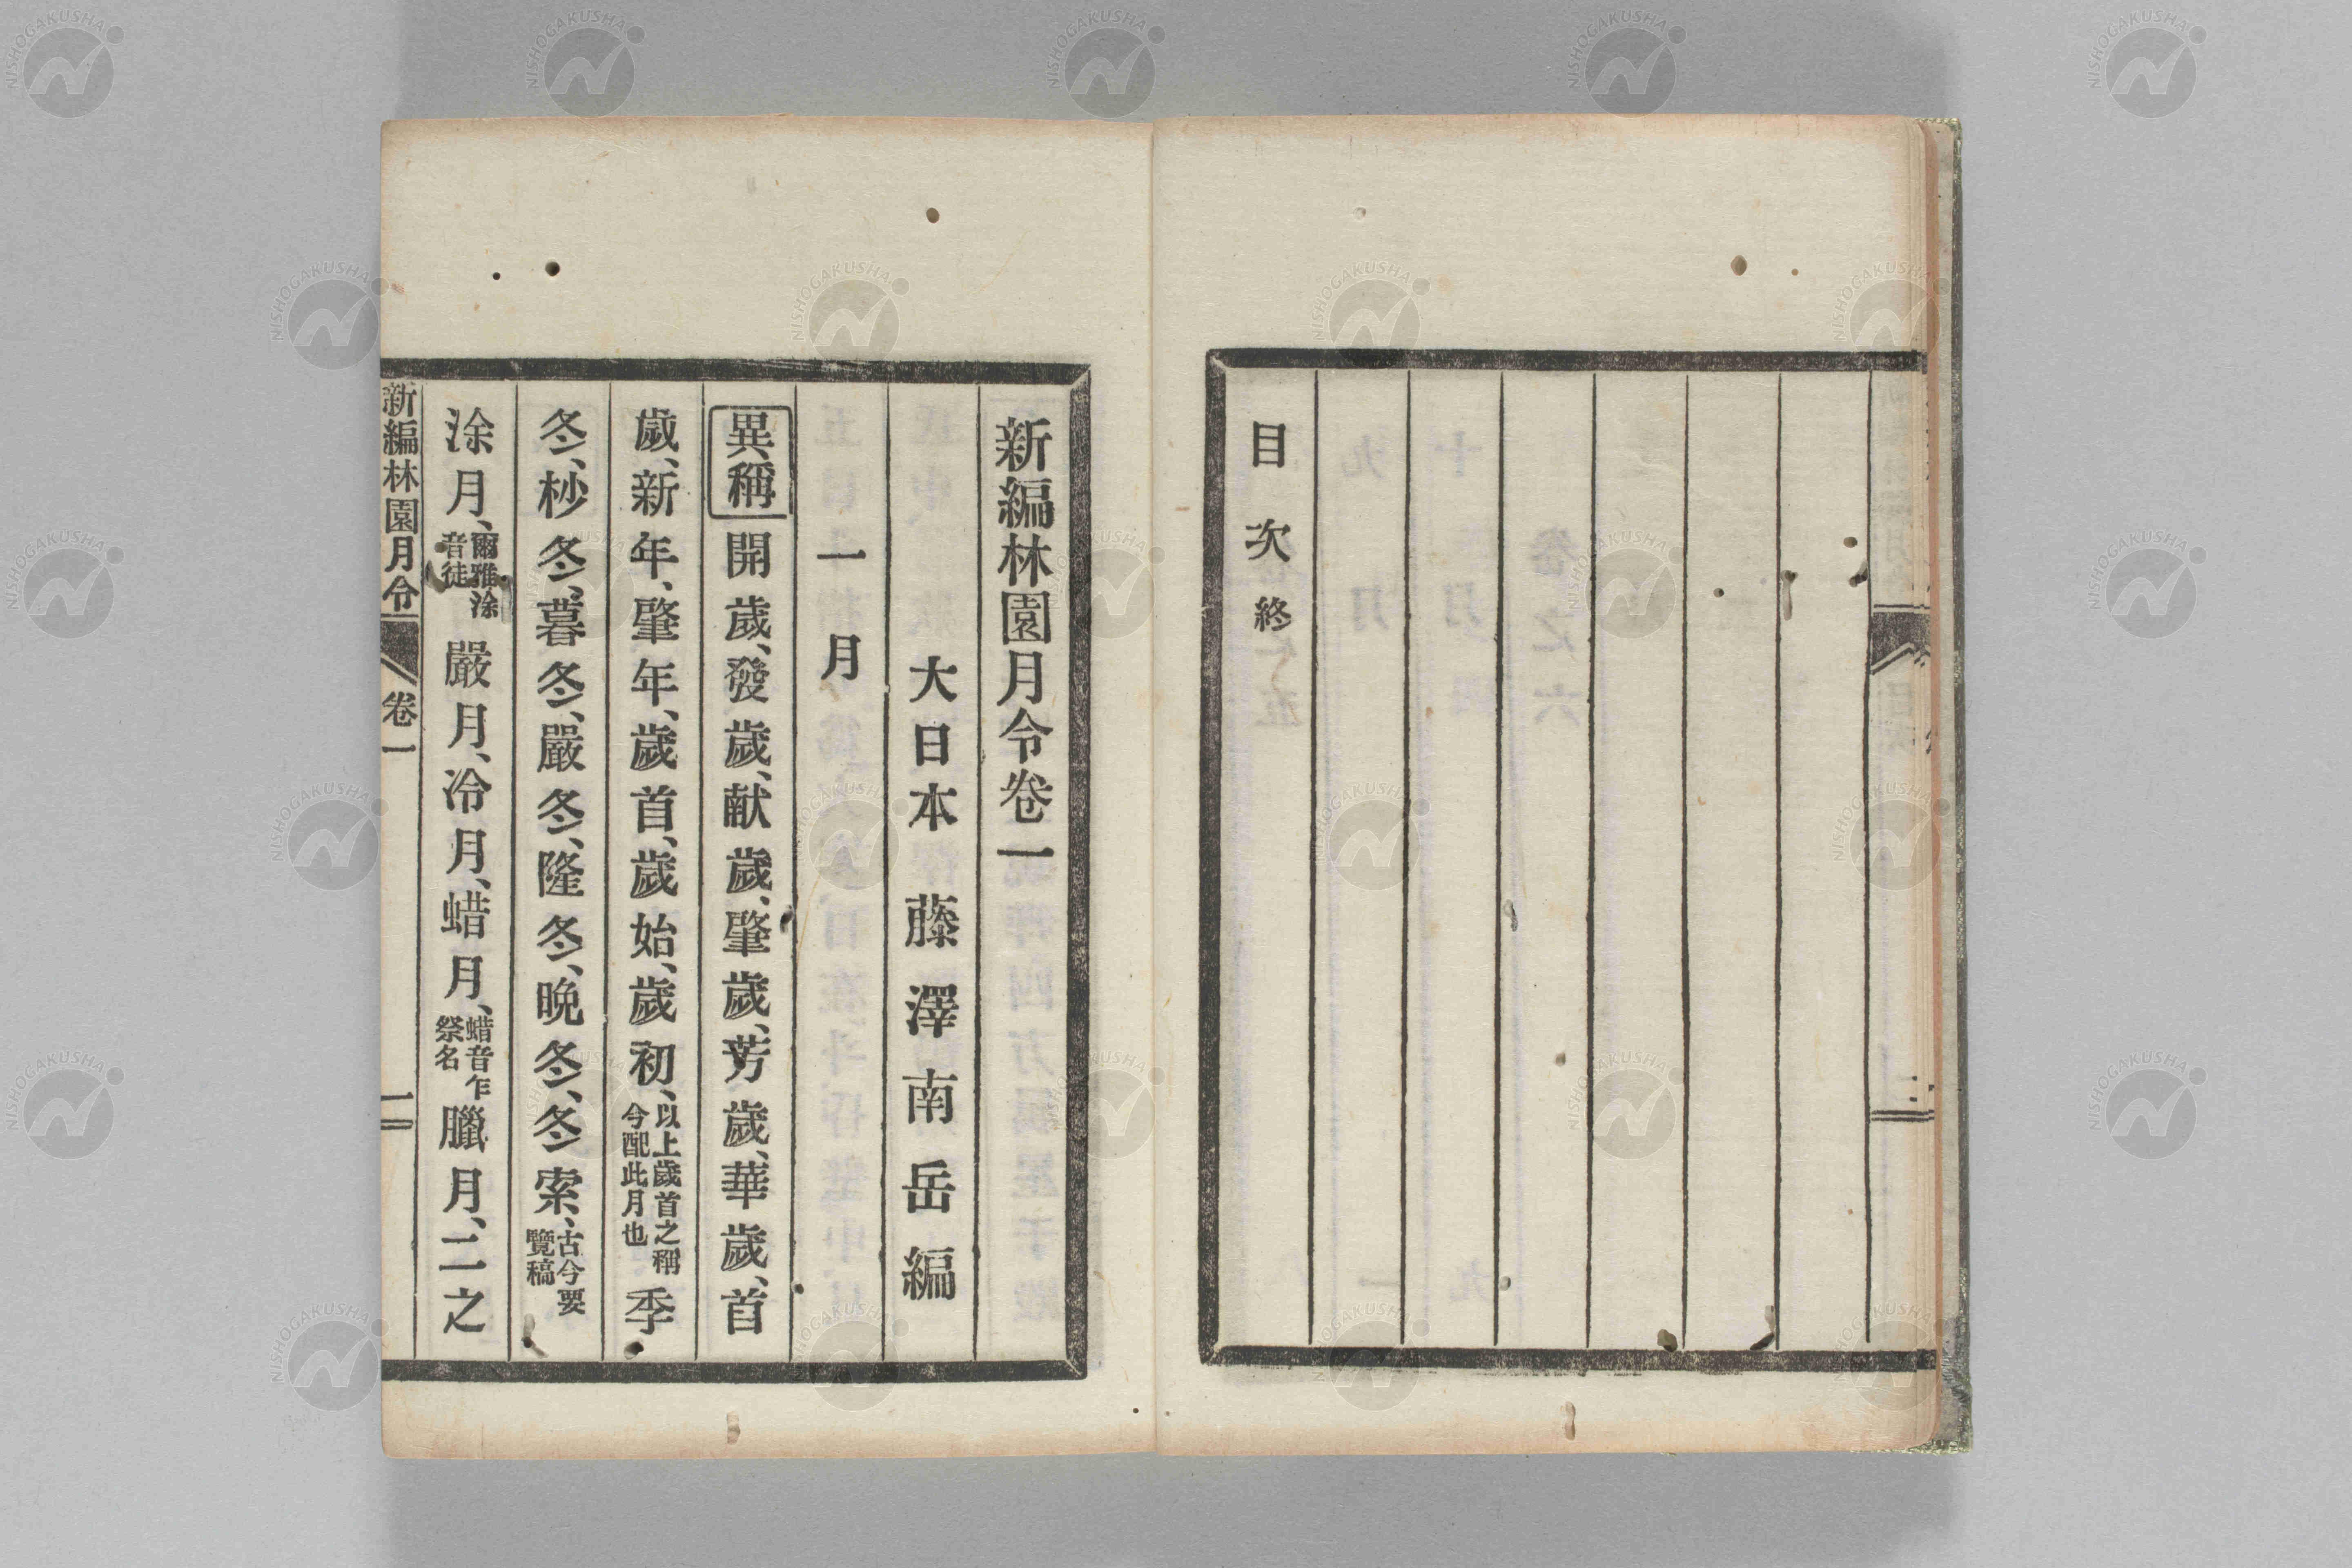 目次終
新編林園月令卷一
大日本 藤澤南岳編
一月
異稱 開歲、發歲、献歲、肇歲、芳歲、華歲、首
歲、新年、肇年、歲首、歲始、歲初、以上歲首之稱今配此月也 季
冬、杪冬、暮冬、嚴冬、隆冬、晚冬、冬索、古今要覽稿
涂月、爾雅涂音徒 嚴月、冷月、蜡月、蜡音乍祭名 臘月、二之
新編林園月令 卷一 一
NISHOGAKUSHA